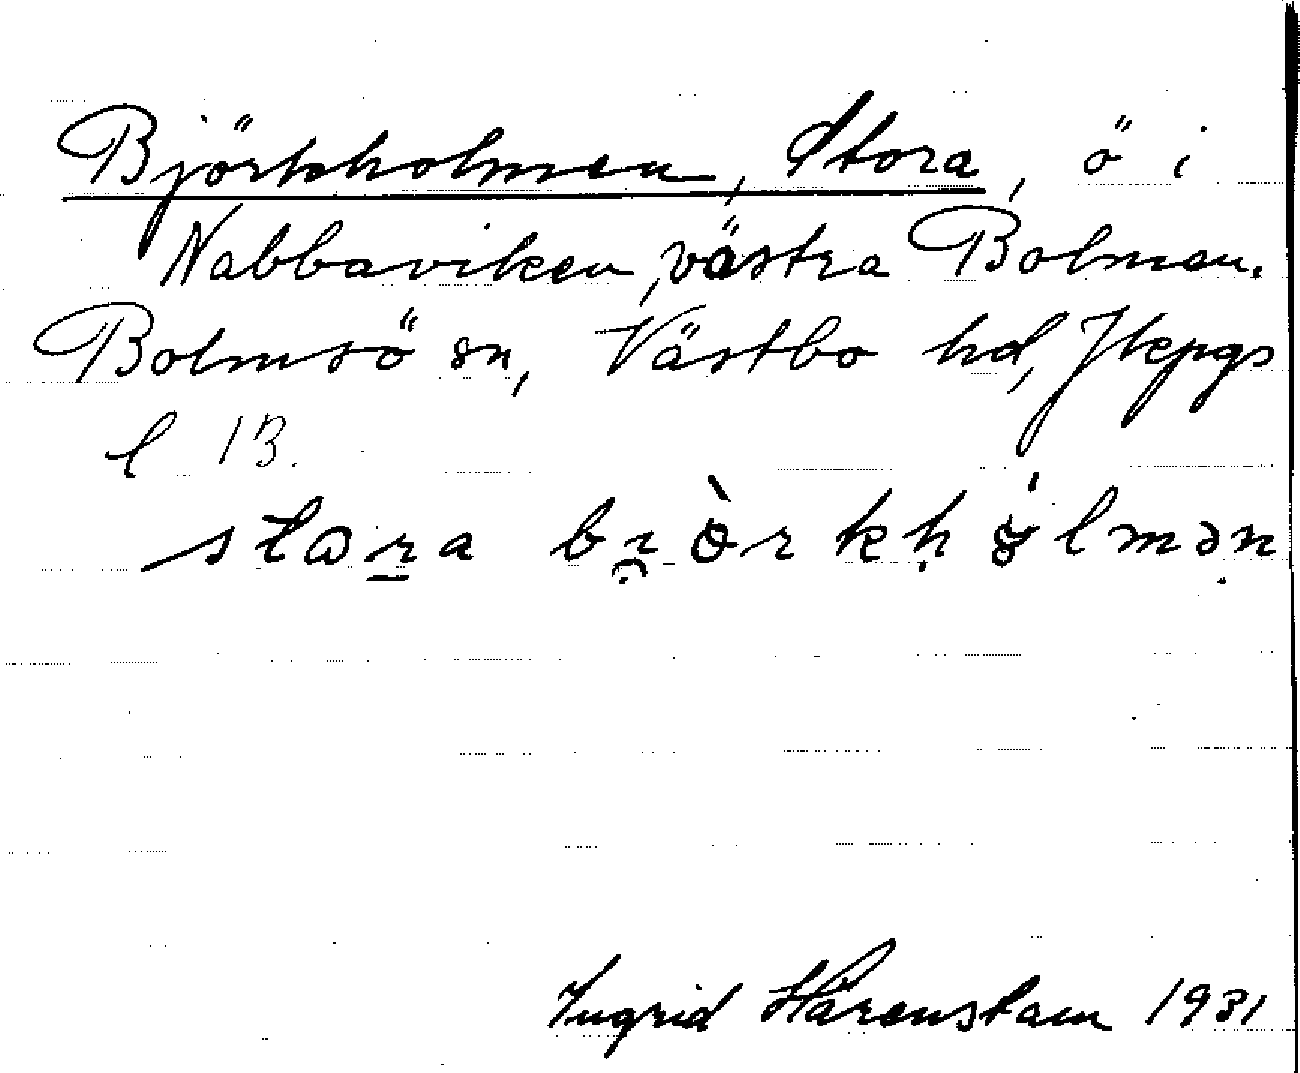 Björkholmen, Stora, ö i
Nabbaviken, västra Bolmen.
Bolmsö sn, Västbo hd, Jkpgs
l 13.
Ingrid Härenstam 1931